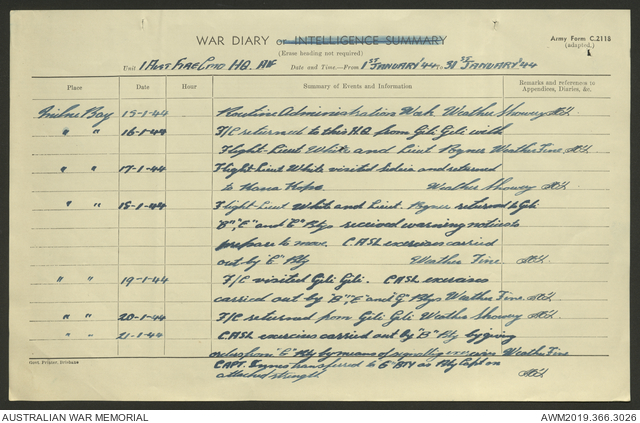 WAR DIARY or INTELLIGENCE SUMMARY
(Erase heading not required)
Army Form C.2118
(adapted.)
1
Unit 1 Aust Fire Cmd HQ. AIF Date and Time.—From 1ST JANUARY '44 to 31ST JANUARY '44
Place Date Hour Summary of Events and Information Remarks and references to Appendices, Diaries, &c.
Milne Bay 15-1-44 Routine Administration Work Weather Showery
" " 16-1-44 F/C returned to this HQ from Gili Gili with
Flight-Lieut White and Lieut Weather Fine
" " 17-1-44 Flight-Lieut White visited and returned
to Hana Weather Showery
" " 18-1-44 Flight-Lieut White and Lieut. returned to Gili
"B", "E" and "G" Btys received warning notice to
prepare to move. CASL exercises carried
out by "E" Bty Weather Fine
" " 19-1-44 F/C visited Gili Gili. CASL exercises
carried out by "B", "E" and "G" Btys Weather Fine
" " 20-1-44 F/C returned from Gili Gili Weather Showery
" " 21-1-44 CASL exercises carried out by "B" Bty by giving
"E" Bty by means of signalling exercises Weather Fine
CAPT. transferred to E BTY as Bty Capt on
attached strength
Govt. Printer, Brisbane
AUSTRALIAN WAR MEMORIAL AWM2019.366.3026